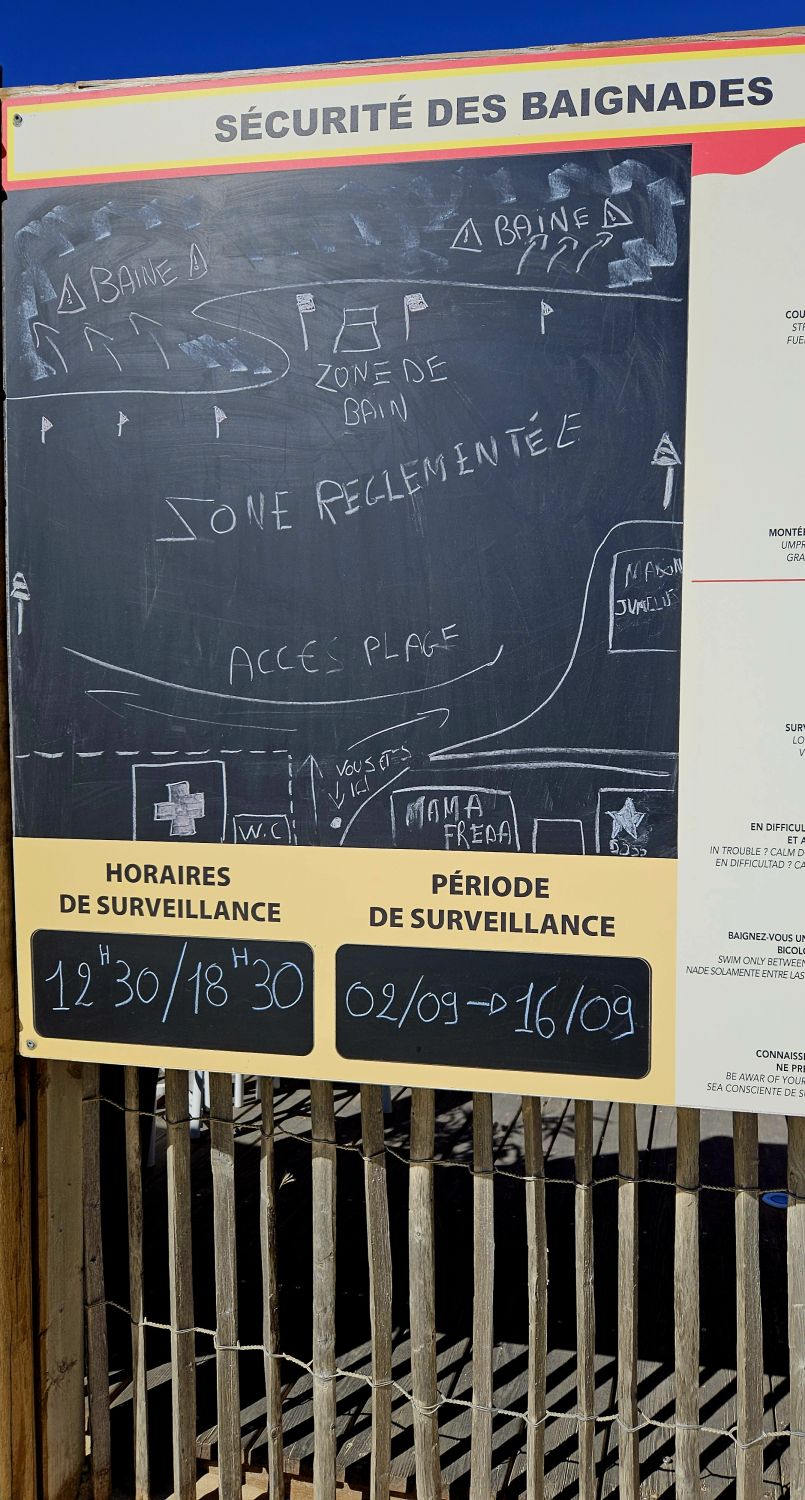 SÉCURITÉ DES BAIGNADES
BAÏNE
BAINE
ZONE DE
BAIN
ZONE REGLEMENTÉE
ACCES PLAGE
VOUS ETES
ICI
W.C
MAMA
FREDA
HORAIRES
DE SURVEILLANCE
12H30/18H30
PÉRIODE
DE SURVEILLANCE
02/09→16/09
COU
STR
FUE
MONTÉ
UMPR
GRA
SURV
LO
V
EN DIFFICUL
ET A
IN TROUBLE ? CALM D
EN DIFFICULTAD ? CA
BAIGNEZ-VOUS UN
BICOLO
SWIM ONLY BETWEEN
NADE SOLAMENTE ENTRE LAS
CONNAISS
NE PRE
BE AWAR OF YOUR
SEA CONSCIENTE DE S